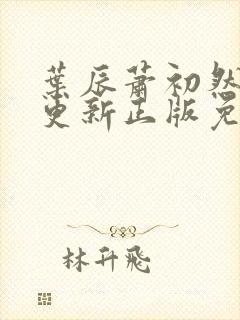 葉辰蕭初然
更新正版免
林升飛